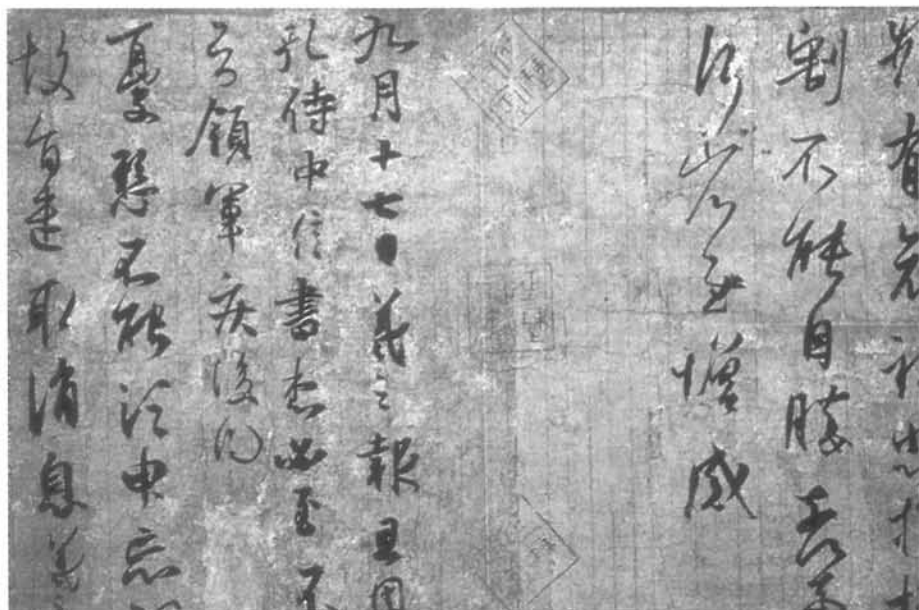 頻有哀禍悲摧切
割不能自勝奈何奈
何省慰增感
九月十七日羲之報且因
孔侍中信書想必至不
知領軍疾後問
憂懸不能須臾忘心
故旨遣取消息羲之